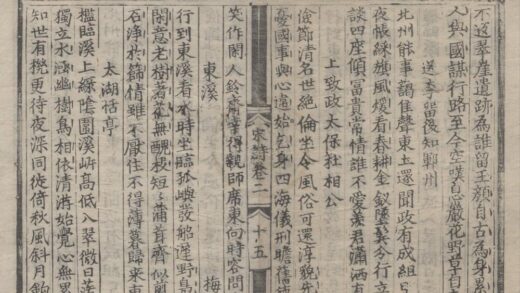 不返翠崖遺跡為誰留玉顏自古為身累
人與國謀行路至今空嘆息巖花野草自春
送李留後知鄆州
北州能事謁佳聲東土還聞政有成組
夜帳綵旗風煖看春耕金釵墜鬢分行立
談四座傾冨貴常情誰不愛羨君瀟洒有
上致政太保杜相公
儉節清名世絕倫坐令風俗可還淳貌先
憂國事與心違始乞身四海儀刑瞻舊
宋詩卷二 十五
笑作閣人鈴齋幸得親師席東向時容問
東溪 梅
行到東溪看水時坐臨孤嶼發船遲野鳧
閑意老樹著花無醜枝短短蒲茸齊似剪
石淨於篩情雖不厭住不得薄暮歸來車
太湖恬亭
檻臨溪上綠陰圍溪岸高低入翠微日落
獨立水涵幽樹鳥相依清游始覺心無累
知世有機更待夜深同徙倚秋風斜月釣